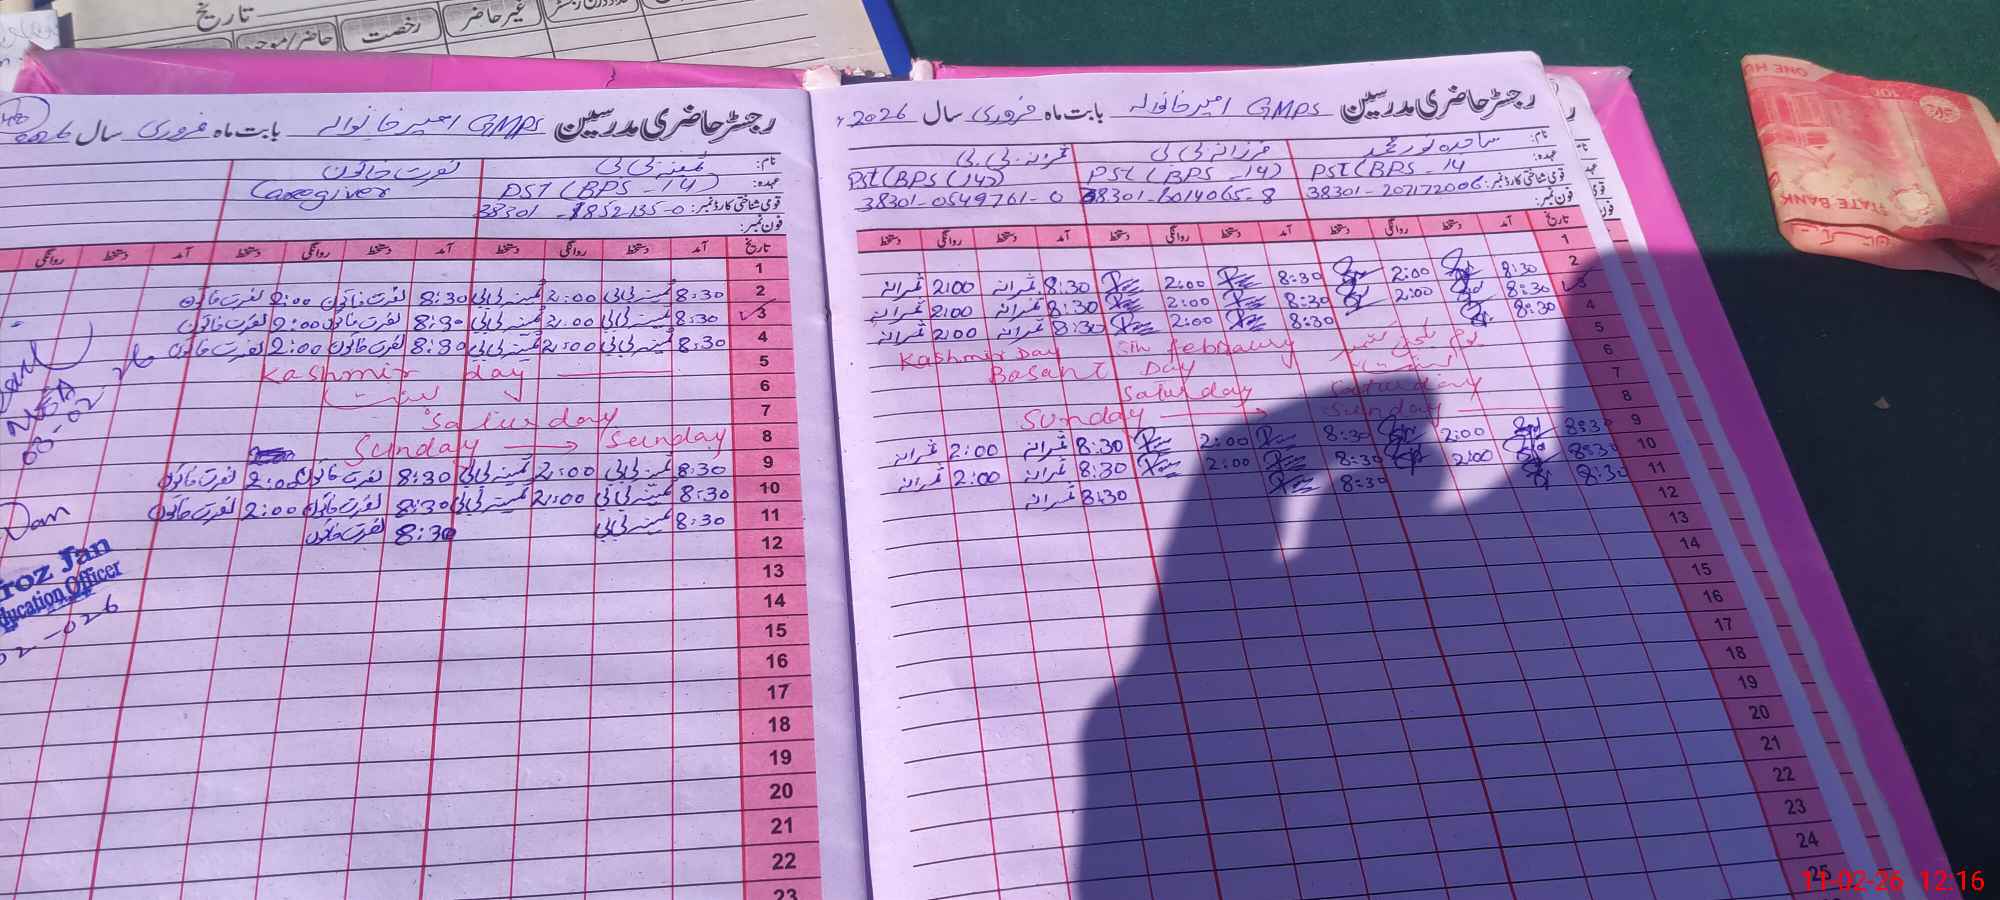 تاریخ
حاضر/موجود رخصت غیر حاضر
رجسٹر حاضری مدرسین GMPS امیر خانوالہ بابت ماہ فروری سال 2026
نام: ثمینہ بی بی نصرت خاتون
عہدہ: PST (BPS-14) Caregiver
قومی شناختی کارڈ نمبر: 38301-1852135-0
فون نمبر:
تاریخ آمد دستخط روانگی دستخط آمد دستخط روانگی دستخط آمد دستخط روانگی
1
2 8:30 ثمینہ بی بی 2:00 ثمینہ بی بی 8:30 نصرت خاتون 2:00 نصرت خاتون
3 8:30 ثمینہ بی بی 2:00 ثمینہ بی بی 8:30 نصرت خاتون 2:00 نصرت خاتون
4 8:30 ثمینہ بی بی 2:00 ثمینہ بی بی 8:30 نصرت خاتون 2:00 نصرت خاتون
5 Kashmir day
6 بسنت
7 Saturday
8 Sunday Sunday
9 8:30 ثمینہ بی بی 2:00 ثمینہ بی بی 8:30 نصرت خاتون 2:00 نصرت خاتون
10 8:30 ثمینہ بی بی 2:00 ثمینہ بی بی 8:30 نصرت خاتون 2:00 نصرت خاتون
11 8:30 ثمینہ بی بی 8:30 نصرت خاتون
12
13
14
15
16
17
18
19
20
21
22
23
03-02
Jan
ducation Officer
رجسٹر حاضری مدرسین GMPS امیر خانوالہ بابت ماہ فروری سال 2026
نام: ساجدہ نور محمد فرزانہ بی بی عمرانہ بی بی
عہدہ: PST (BPS-14 PST (BPS-14) PST (BPS (14)
قومی شناختی کارڈ نمبر: 38301-207172006 38301-6014065-8 38301-0549761-0
فون نمبر:
تاریخ آمد دستخط روانگی دستخط آمد دستخط روانگی دستخط آمد دستخط روانگی دستخط
1
2 8:30 2:00 8:30 2:00 8:30 عمرانہ 2:00 عمرانہ
3 8:30 2:00 8:30 2:00 8:30 عمرانہ 2:00 عمرانہ
4 8:30 8:30 2:00 8:30 عمرانہ 2:00 عمرانہ
5 Kashmir Day 5th february یوم یکجہتی کشمیر
6 Basant Day بسنت
7 Saturday Saturday
8 Sunday Sunday
9 8:30 2:00 8:30 2:00 8:30 عمرانہ 2:00 عمرانہ
10 8:30 2:00 8:30 2:00 8:30 عمرانہ 2:00 عمرانہ
11 8:30 8:30 8:30 عمرانہ
12
13
14
15
16
17
18
19
20
21
22
23
24
25
ONE HU
100
STATE BANK
11-02-26 12:16